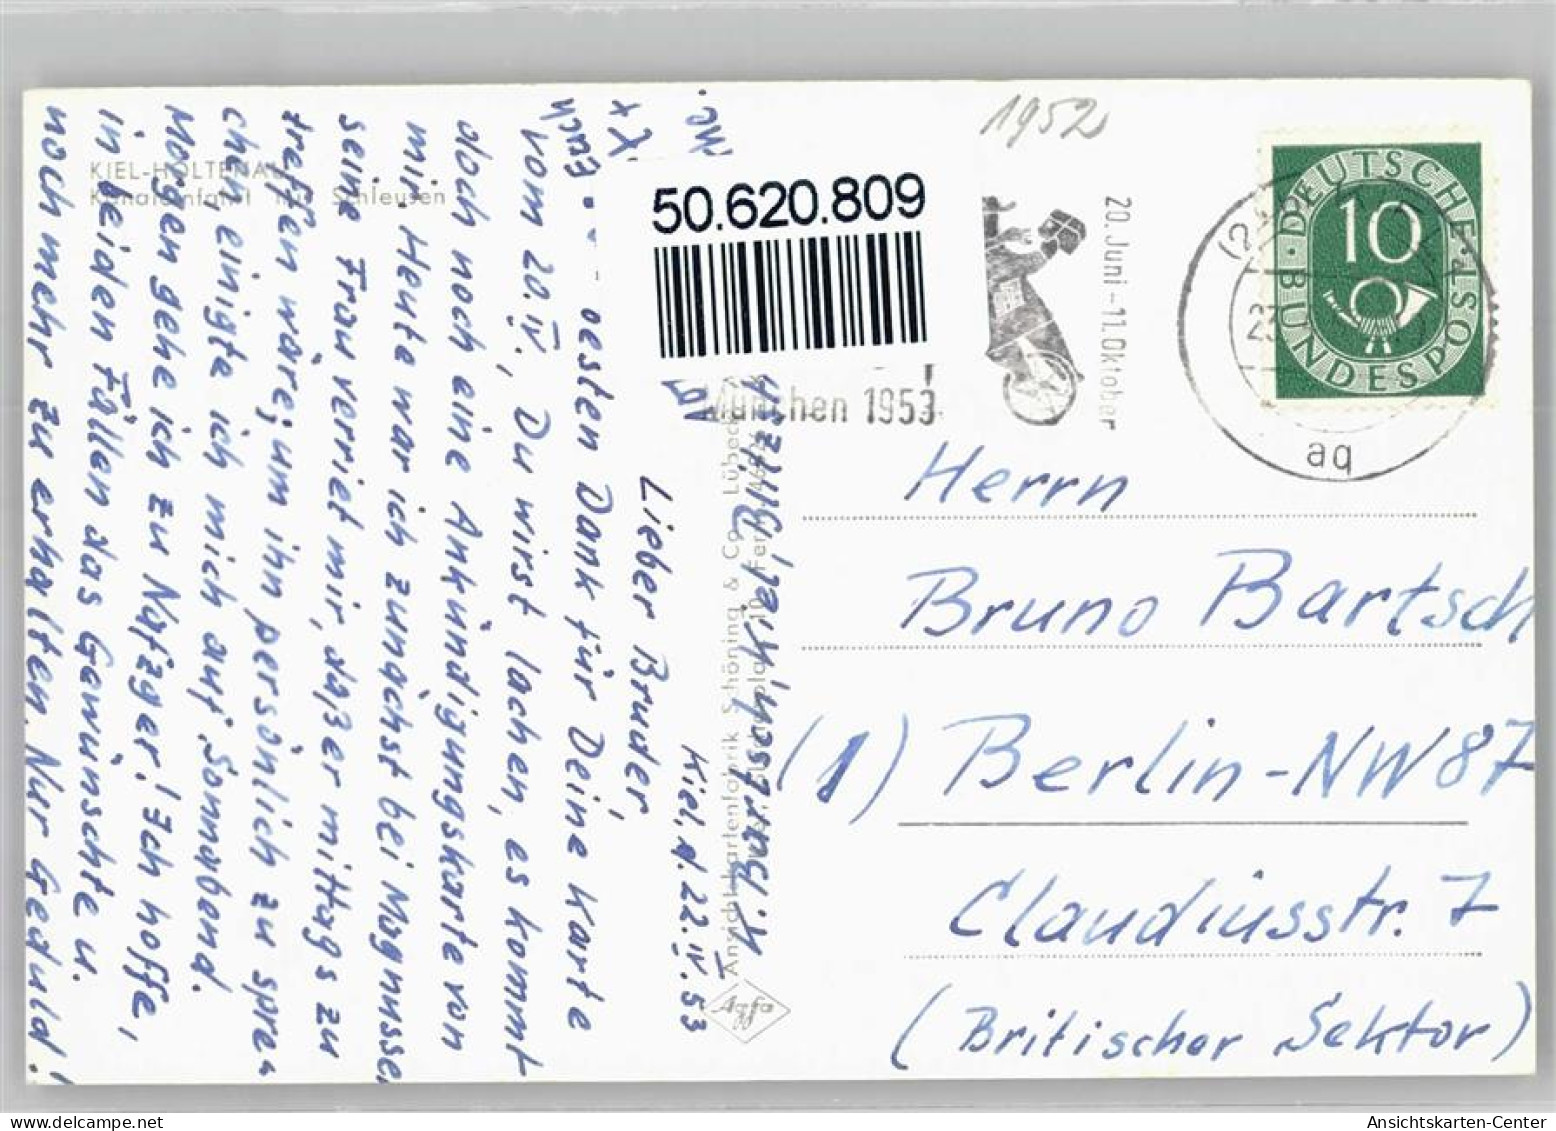 1952
KIEL-HOLTENAU
Schleusen
50.620.809
20. Juni - 11. Oktober
München 1953
DEUTSCHE BUNDESPOST
10
aq
Kiel, d. 22.IV.53
Lieber Bruder,
besten Dank für Deine Karte
vom 20.IV., Du wirst lachen, es kommt
doch noch eine Ankündigungskarte von
mir. Heute war ich zunächst bei Magnussen
seine Frau verriet mir, daß er mittags zu
treffen wäre; um ihn persönlich zu spre-
chen, einigte ich mich auf Sonnabend.
Morgen gehe ich zu Nafzger! Ich hoffe,
in beiden Fällen das Gewünschte u.
noch mehr zu erhalten. Nur Geduld!
Euch
Ansichtskartenfabrik Schöning & Co., Lübeck
Agfa
Herrn
Bruno Bartsch
(1) Berlin-NW87
Claudiusstr. 7
(Britischer Sektor)
Ansichtskarten-Center